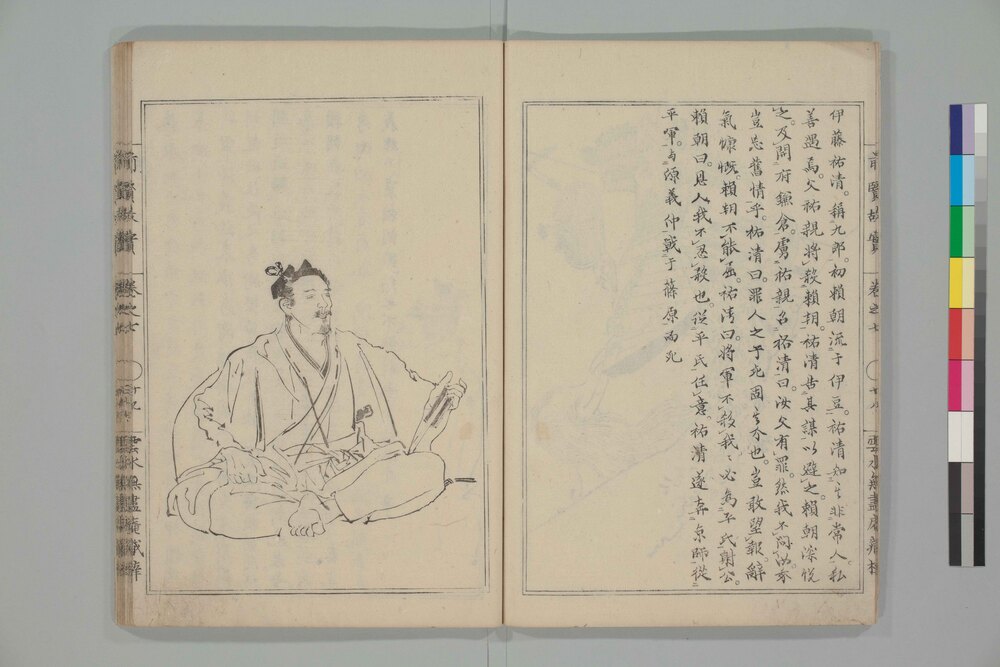 伊藤祐清。稱九郎。初賴朝流于伊豆。祐清知其非常人。私
善遇焉。父祐親將殺賴朝。祐清告其謀以避之。賴朝深悅
之。及開府鎌倉。虜祐親。召祐清曰。汝父有罪。然我不問汝。我
豈忘舊情乎。祐清曰。罪人之子死固其分也。豈敢望報。辭
氣慷慨。賴朝不能屈。祐清曰。將軍不殺我。我必為平氏射公。
賴朝曰。恩人我不忍殺也。從平氏任意。祐清遂奔京師。從
平軍。與源義仲戰于篠原而死
前賢故實
卷之七
雲水無盡庵藏梓